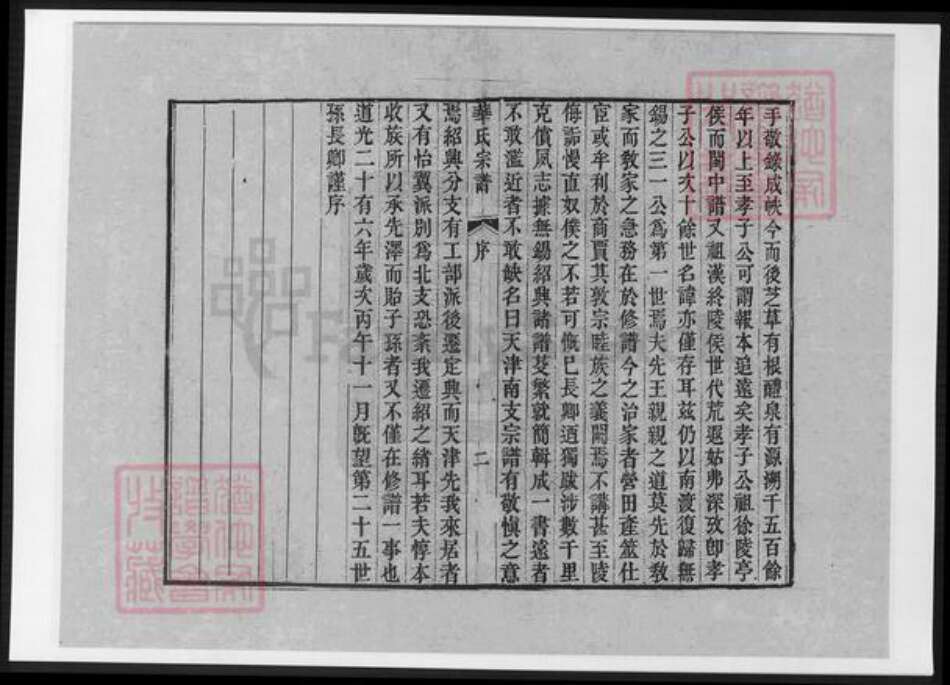 手敬錄成帙今而後芝草有根醴泉有源溯千五百餘
年以上至孝子公可謂報本追遠矣孝子公祖徐陵亭
侯而閩中譜又祖漢終陵侯世代荒遐姑弗深攷卽孝
子公以次十餘世名諱亦僅存耳茲仍以南渡復歸無
錫之三一公爲第一世焉夫先王親親之道莫先於教
家而教家之急務在於修譜今之治家者營田產筮仕
宦或牟利於商賈其敦宗睦族之義闕焉不講甚至陵
侮詬慢直奴僕之不若可慨已長卿迺獨跋涉數千里
克償夙志據無錫紹興諸譜芟繁就簡輯成一書遠者
不敢濫近者不敢缺名曰天津南支宗譜有敬愼之意
華氏宗譜 序 二
焉紹興分支有工部派後遷定興而天津先我來居者
又有怡翼派別爲北支恐紊我遷紹之緒耳若夫惇本
收族所以承先澤而貽子孫者又不僅在修譜一事也
道光二十有六年歲次丙午十一月旣望第二十五世
孫長卿謹序